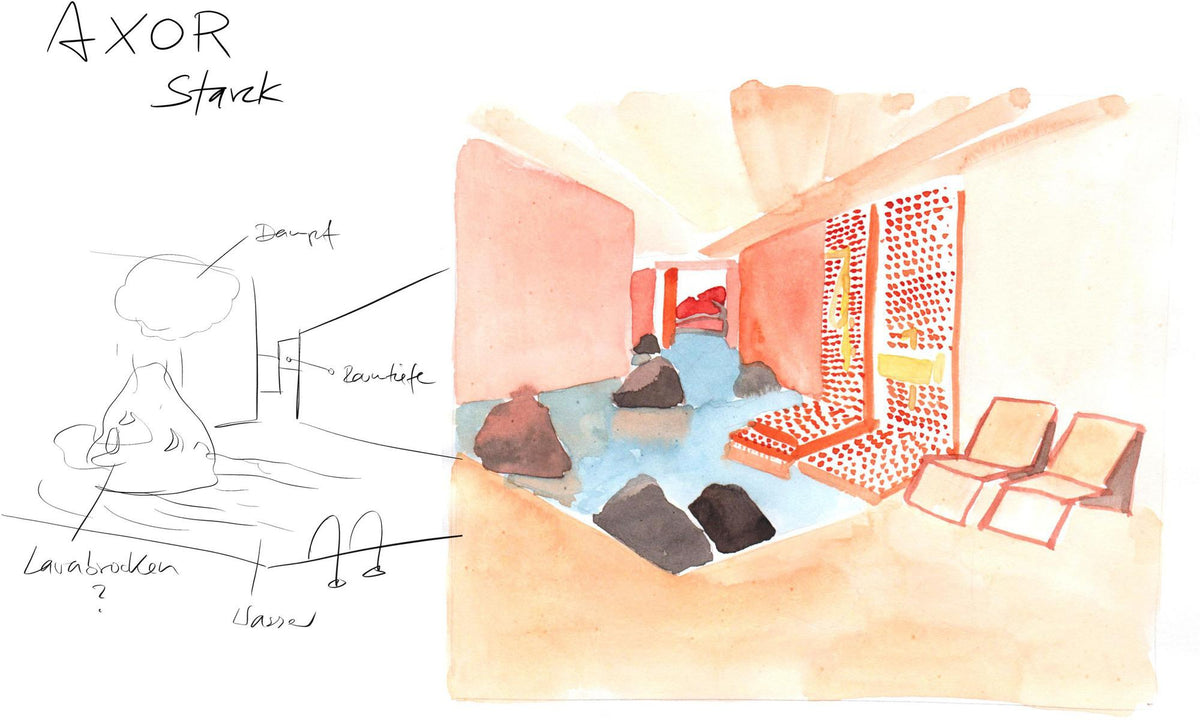 AXOR
Starck
Dampf
Raumtiefe
Lavabrocken
?
Wasser